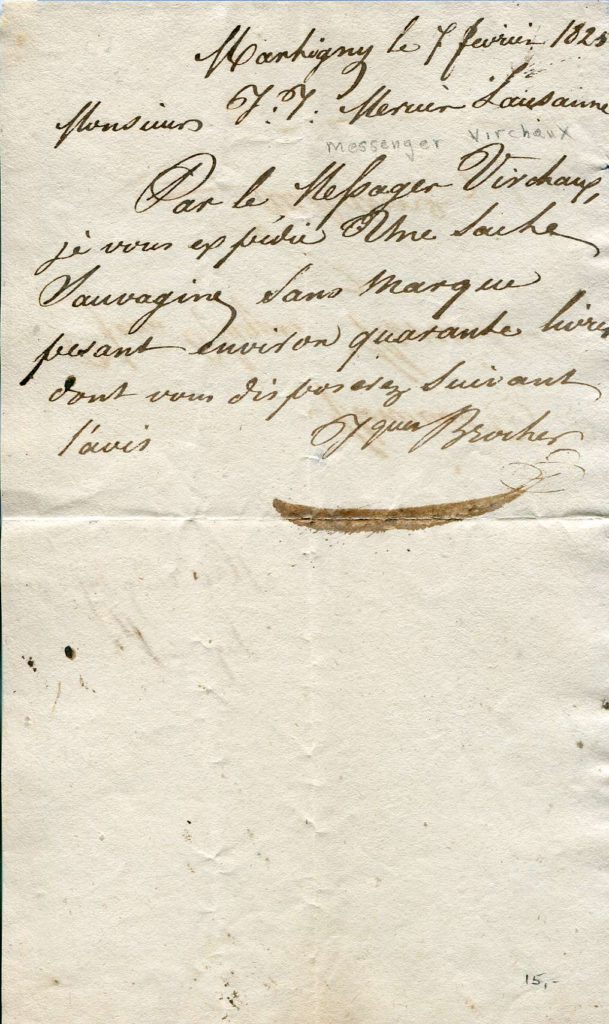 Martigny le 7 fevrier 1825
Monsieur J. J. Mercier Lausanne
Messenger Virchaux
Par le Messager Virchaux,
je vous expédie Une sache
Sauvagine, Sans Marque
pesant environ quarante livres
dont vous disposerez Suivant
l'avis Jques Brocher
15,-